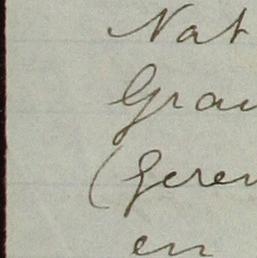 Nat
Grau
(Geren
en